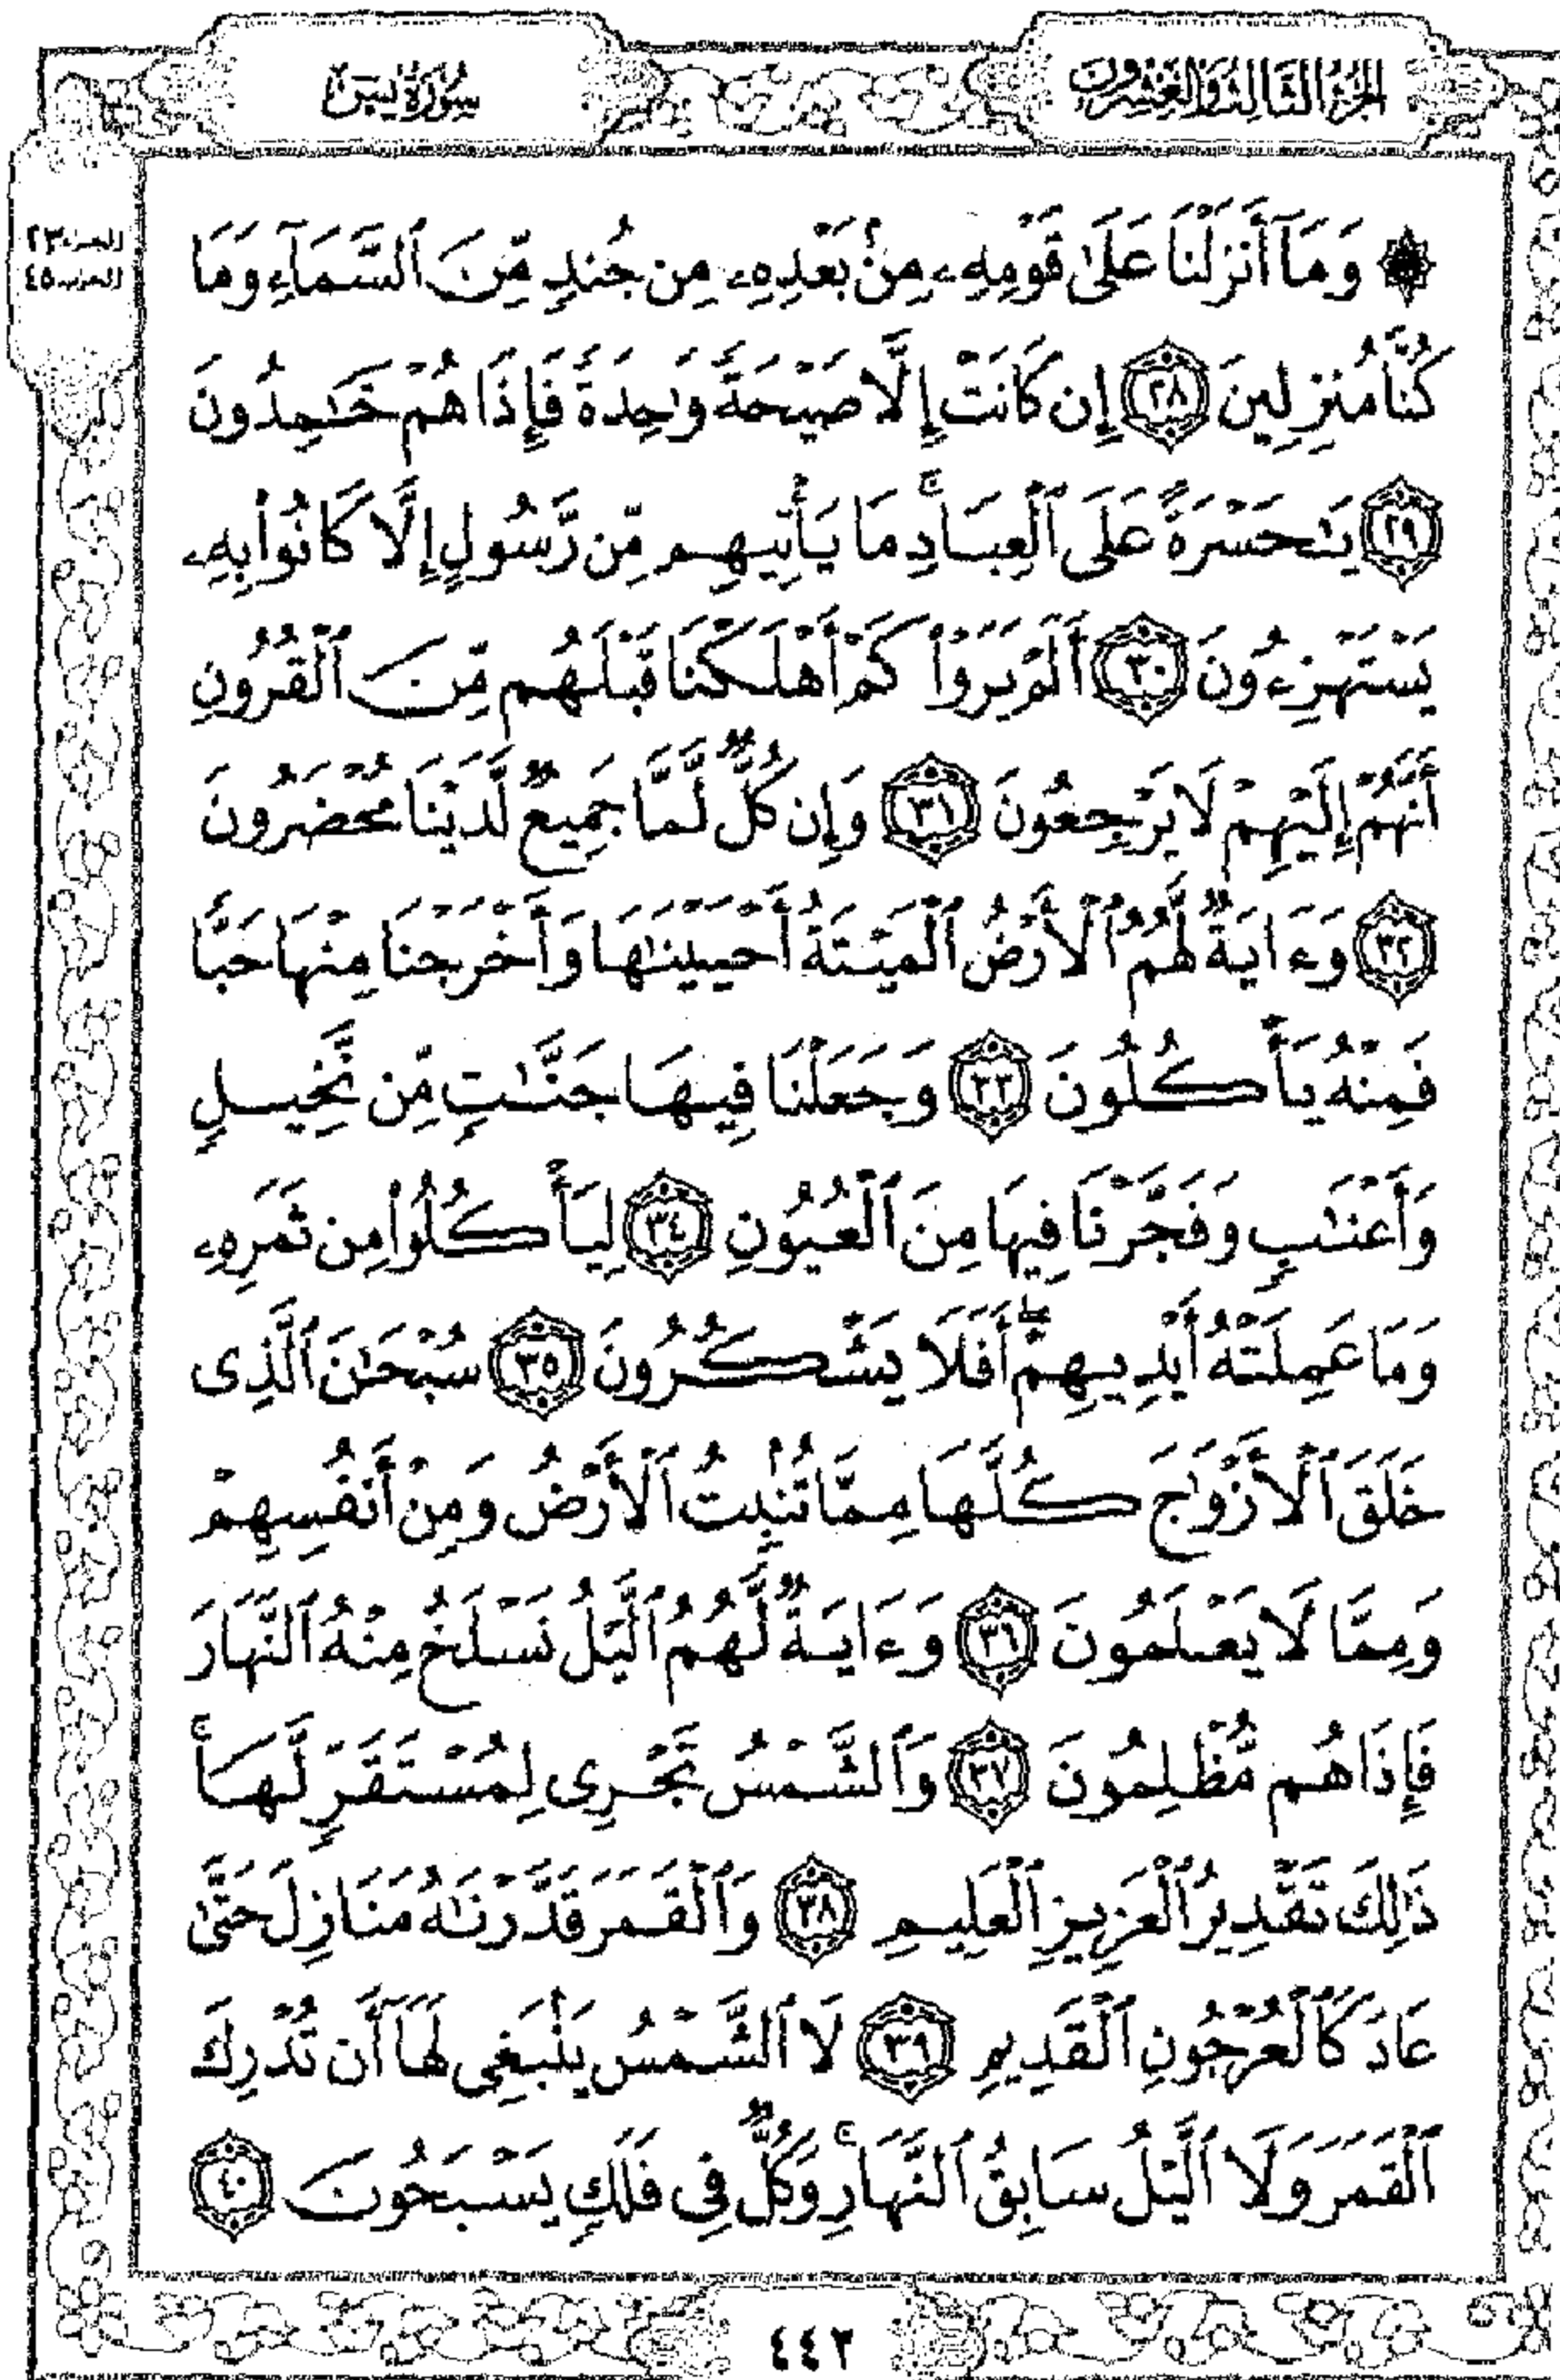 الجزء الثالث والعشرون
سورة يس
الجزء ٢٣
الحزب ٤٥
۞ وَمَآ أَنزَلْنَا عَلَىٰ قَوْمِهِۦ مِنۢ بَعْدِهِۦ مِن جُندٍ مِّنَ ٱلسَّمَآءِ وَمَا
كُنَّا مُنزِلِينَ ٢٨ إِن كَانَتْ إِلَّا صَيْحَةً وَٰحِدَةً فَإِذَا هُمْ خَٰمِدُونَ
٢٩ يَٰحَسْرَةً عَلَى ٱلْعِبَادِۚ مَا يَأْتِيهِم مِّن رَّسُولٍ إِلَّا كَانُوا۟ بِهِۦ
يَسْتَهْزِءُونَ ٣٠ أَلَمْ يَرَوْا۟ كَمْ أَهْلَكْنَا قَبْلَهُم مِّنَ ٱلْقُرُونِ
أَنَّهُمْ إِلَيْهِمْ لَا يَرْجِعُونَ ٣١ وَإِن كُلٌّ لَّمَّا جَمِيعٌ لَّدَيْنَا مُحْضَرُونَ
٣٢ وَءَايَةٌ لَّهُمُ ٱلْأَرْضُ ٱلْمَيْتَةُ أَحْيَيْنَٰهَا وَأَخْرَجْنَا مِنْهَا حَبًّا
فَمِنْهُ يَأْكُلُونَ ٣٣ وَجَعَلْنَا فِيهَا جَنَّٰتٍ مِّن نَّخِيلٍ
وَأَعْنَٰبٍ وَفَجَّرْنَا فِيهَا مِنَ ٱلْعُيُونِ ٣٤ لِيَأْكُلُوا۟ مِن ثَمَرِهِۦ
وَمَا عَمِلَتْهُ أَيْدِيهِمْۖ أَفَلَا يَشْكُرُونَ ٣٥ سُبْحَٰنَ ٱلَّذِى
خَلَقَ ٱلْأَزْوَٰجَ كُلَّهَا مِمَّا تُنۢبِتُ ٱلْأَرْضُ وَمِنْ أَنفُسِهِمْ
وَمِمَّا لَا يَعْلَمُونَ ٣٦ وَءَايَةٌ لَّهُمُ ٱلَّيْلُ نَسْلَخُ مِنْهُ ٱلنَّهَارَ
فَإِذَا هُم مُّظْلِمُونَ ٣٧ وَٱلشَّمْسُ تَجْرِى لِمُسْتَقَرٍّ لَّهَاۚ
ذَٰلِكَ تَقْدِيرُ ٱلْعَزِيزِ ٱلْعَلِيمِ ٣٨ وَٱلْقَمَرَ قَدَّرْنَٰهُ مَنَازِلَ حَتَّىٰ
عَادَ كَٱلْعُرْجُونِ ٱلْقَدِيمِ ٣٩ لَا ٱلشَّمْسُ يَنۢبَغِى لَهَآ أَن تُدْرِكَ
ٱلْقَمَرَ وَلَا ٱلَّيْلُ سَابِقُ ٱلنَّهَارِۚ وَكُلٌّ فِى فَلَكٍ يَسْبَحُونَ ٤٠
٤٤٢